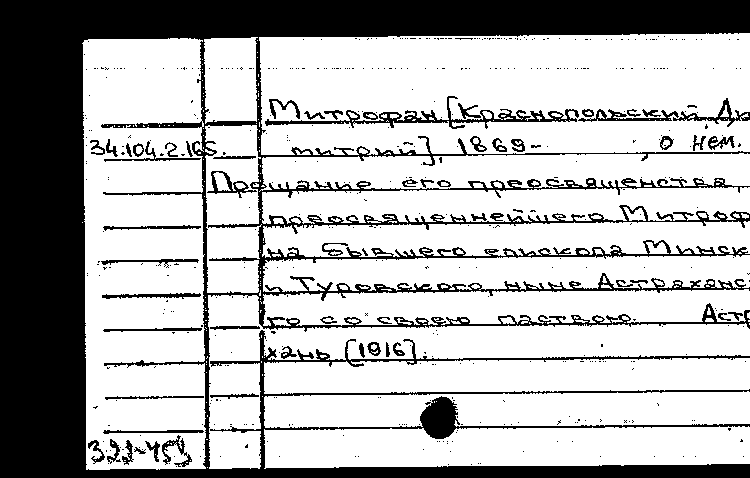 Митрофан [Краснопольский, Ди
34.104.2.165. митрий], 1869- , о нем.
Прощание его преосвященства,
преосвященнейшего Митроф
на, бывшего епископа Минск
и Туровского, ныне Астраханс
го, со своею паствою. Астр
хань, [1916].
322-459